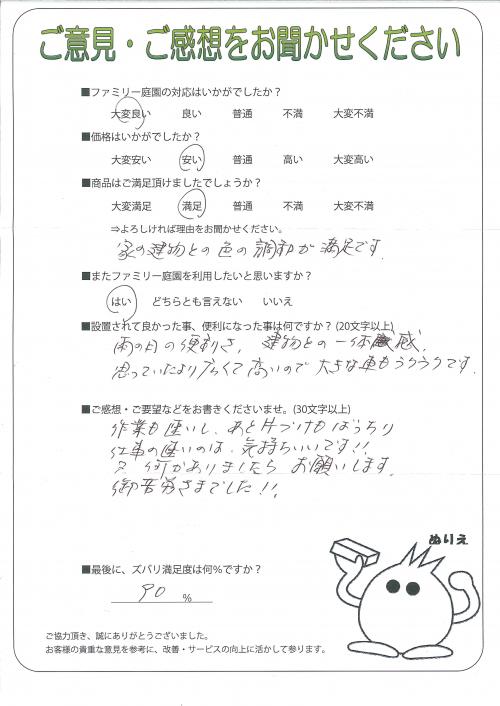 ご意見・ご感想をお聞かせください
■ファミリー庭園の対応はいかがでしたか？
大変良い 良い 普通 不満 大変不満
■価格はいかがでしたか？
大変安い 安い 普通 高い 大変高い
■商品はご満足頂けましたでしょうか？
大変満足 満足 普通 不満 大変不満
⇒よろしければ理由をお聞かせください。
家の建物との色の調和が満足です。
■またファミリー庭園を利用したいと思いますか？
はい どちらとも言えない いいえ
■設置されて良かった事、便利になった事は何ですか？(20文字以上)
雨の日の便利さ、建物との一体感、
思っていたより広くて高いので大きな車もラクラクです。
■ご感想・ご要望などをお書きくださいませ。(30文字以上)
作業も速いし、あと片づけもばっちり
仕事の速いのは、気持ちいいです!!
又何かありましたらお願いします。
御苦労さまでした!!
ぬりえ
■最後に、ズバリ満足度は何％ですか？
90 %
ご協力頂き、誠にありがとうございました。
お客様の貴重な意見を参考に、改善・サービスの向上に活かして参ります。